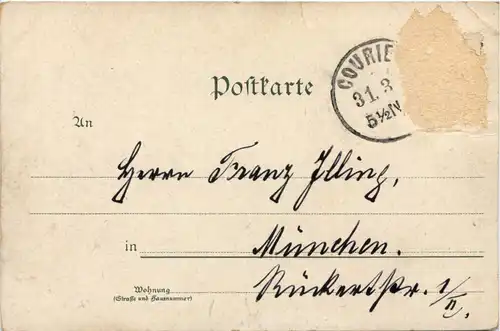 COURIE
31. 3
5½N
Postkarte
An
Herrn Franz Illing,
in München.
Wohnung
(Straße und Hausnummer)
Rückertstr. 1/II.